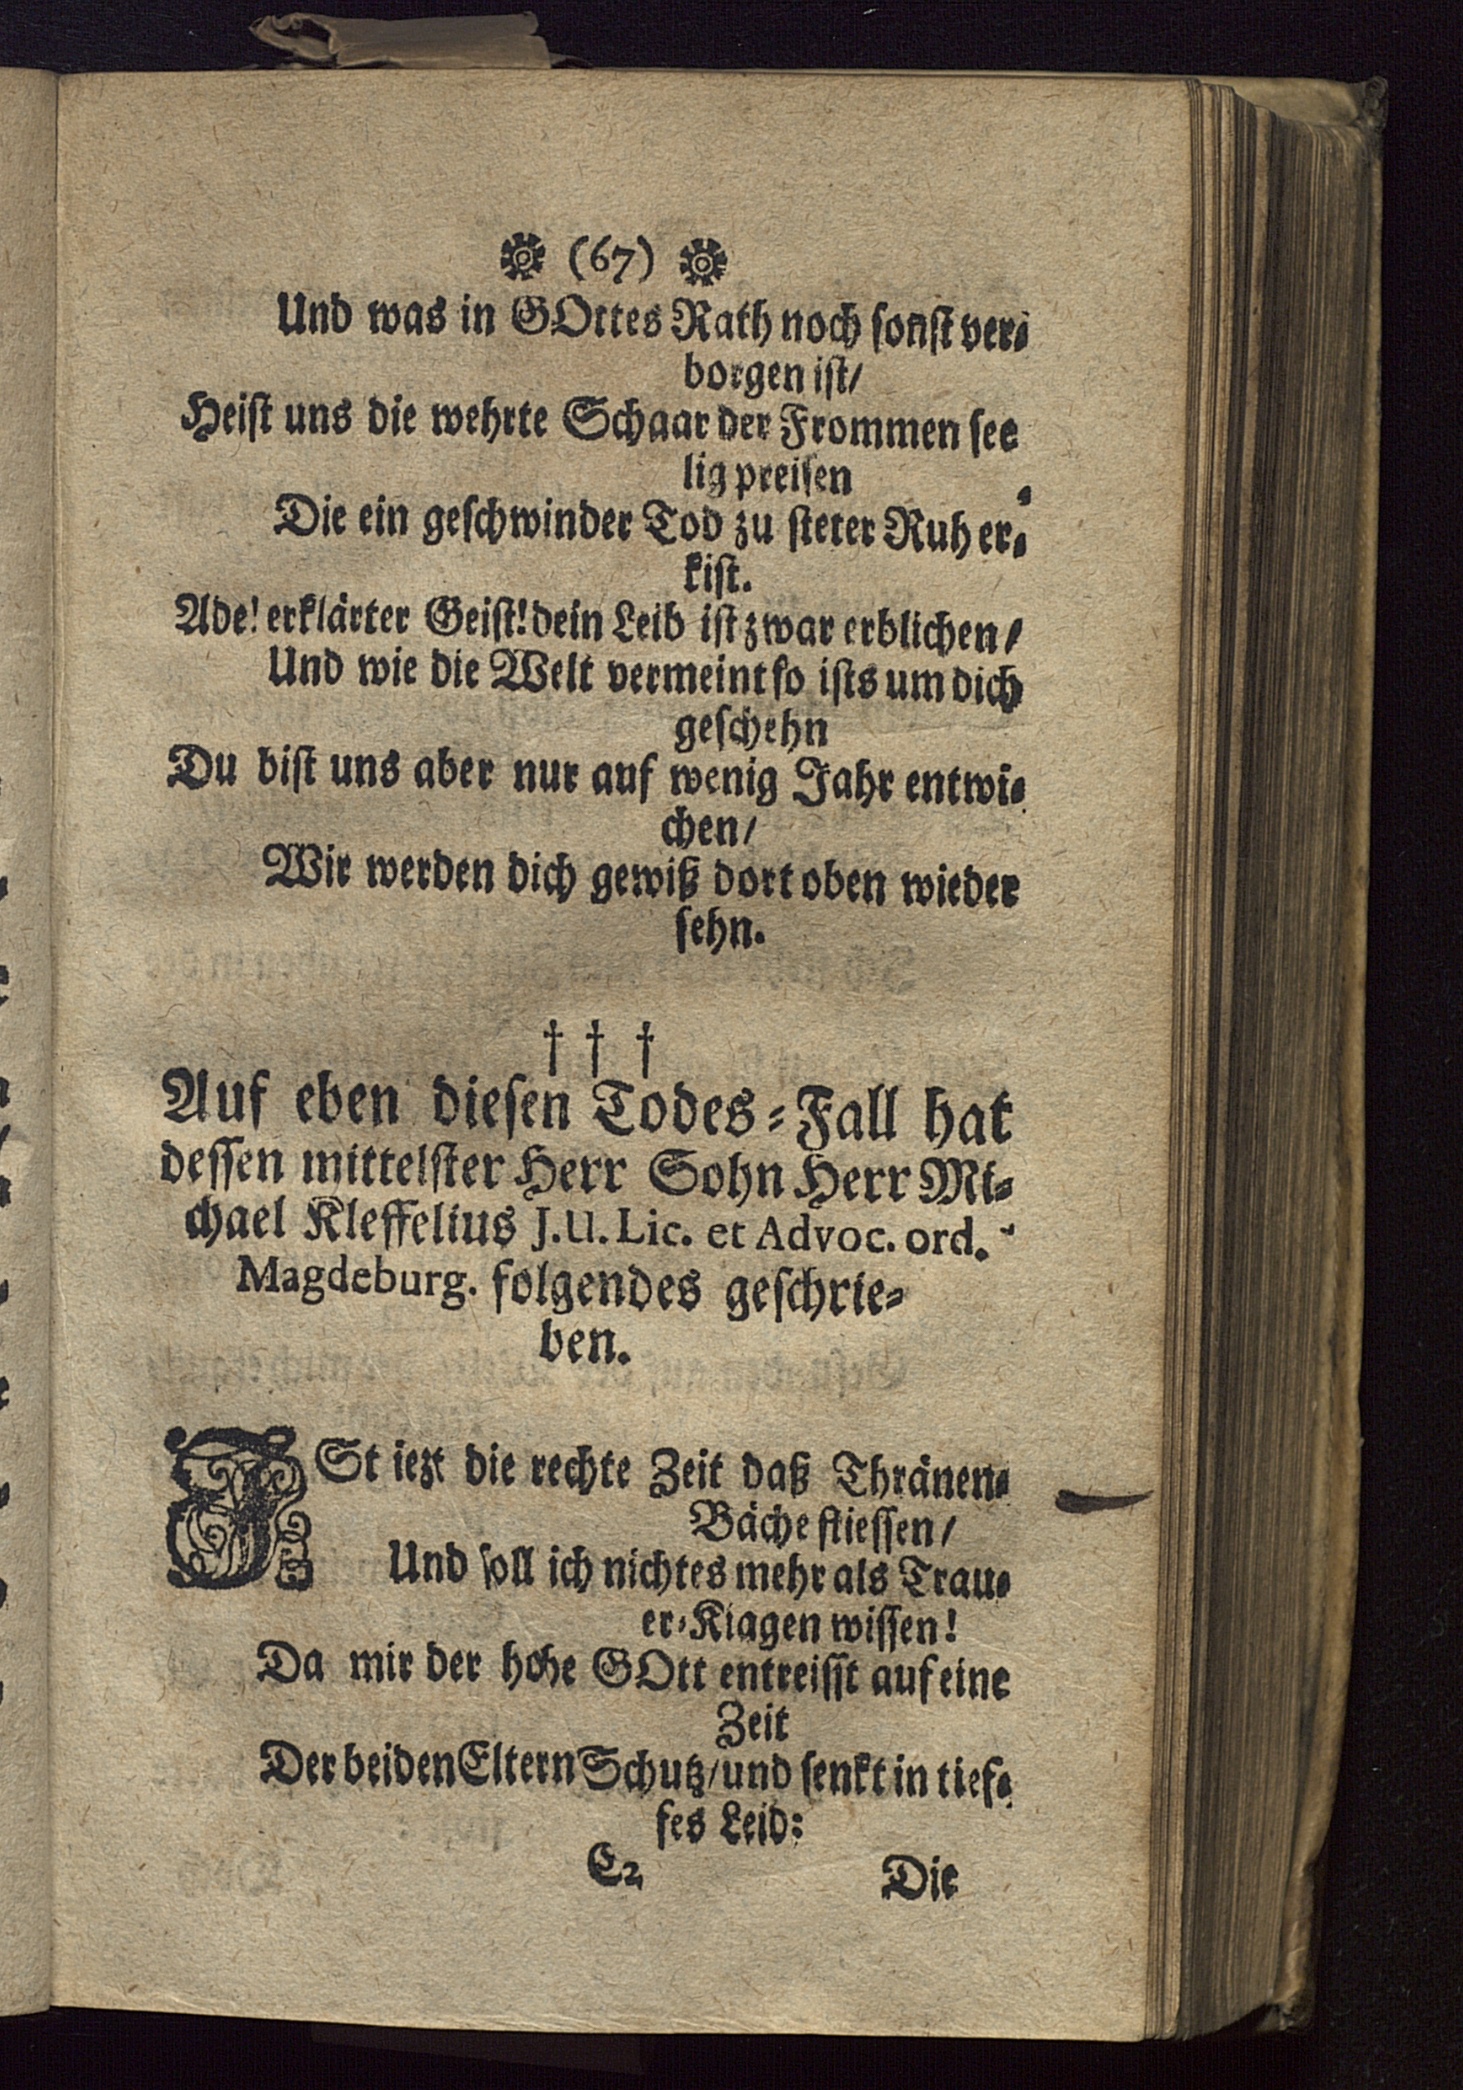 (67)
Und was in GOttes Rath noch sonst ver-
borgen ist/
Heist uns die wehrte Schaar der Frommen see
lig preisen
Die ein geschwinder Tod zu steter Ruh er-
kist.
Ade! erklärter Geist! dein Leib ist zwar erblichen/
Und wie die Welt vermeint so ists um dich
geschehn
Du bist uns aber nur auf wenig Jahr entwi-
chen/
Wir werden dich gewiß dort oben wieder
sehn.
† † †
Auf eben diesen Todes-Fall hat
dessen mittelster Herr Sohn Herr Mi-
chael Kleffelius J.U. Lic. et Advoc. ord.
Magdeburg. folgendes geschrie-
ben.
ISt iezt die rechte Zeit daß Thränen-
Bäche fliessen/
Und soll ich nichtes mehr als Trau-
er-Klagen wissen!
Da mir der hohe GOtt entreisst auf eine
Zeit
Der beiden Eltern Schutz/ und senkt in tief-
fes Leid:
E2
Die